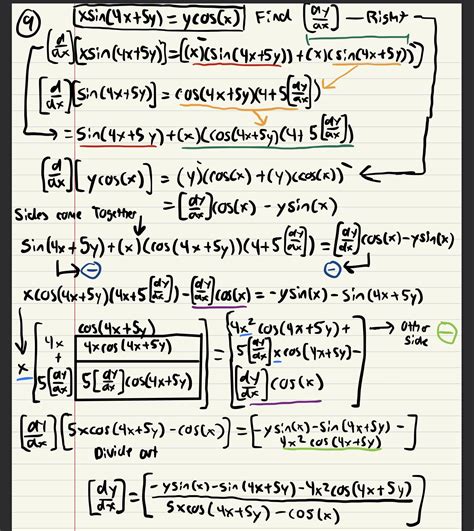 9 xsin(4x+5y)=ycos(x) Find [dy/dx] — Right
[d/dx][xsin(4x+5y)]=[(x)'(sin(4x+5y))+(x)(sin(4x+5y))']
[d/dx][sin(4x+5y)]=cos(4x+5y)(4+5[dy/dx])
=Sin(4x+5y)+(x)(cos(4x+5y)(4+5[dy/dx])
[d/dx][ycos(x)]=(y)'(cos(x)+(y)(cos(x))'
=[dy/dx]cos(x)-ysin(x)
Sides come Together
Sin(4x+5y)+(x)(cos(4x+5y))(4+5[dy/dx])=[dy/dx]cos(x)-ysin(x)
- -
xcos(4x+5y)(4x+5[dy/dx])-[dy/dx]cos(x)=-ysin(x)-sin(4x+5y)
cos(4x+5y)
x 4x + 5[dy/dx]
4xcos(4x+5y)
5[dy/dx]cos(4x+5y)
= [4x²cos(4x+5y)+
5[dy/dx]xcos(4x+5y)-
[dy/dx]cos(x)]
Other Side -
[dy/dx][5xcos(4x+5y)-cos(x)]=[-ysin(x)-sin(4x+5y)-
4x²cos(4x+5y)]
Divide out
[dy/dx]=[-ysin(x)-sin(4x+5y)-4x²cos(4x+5y)/5xcos(4x+5y)-cos(x)]